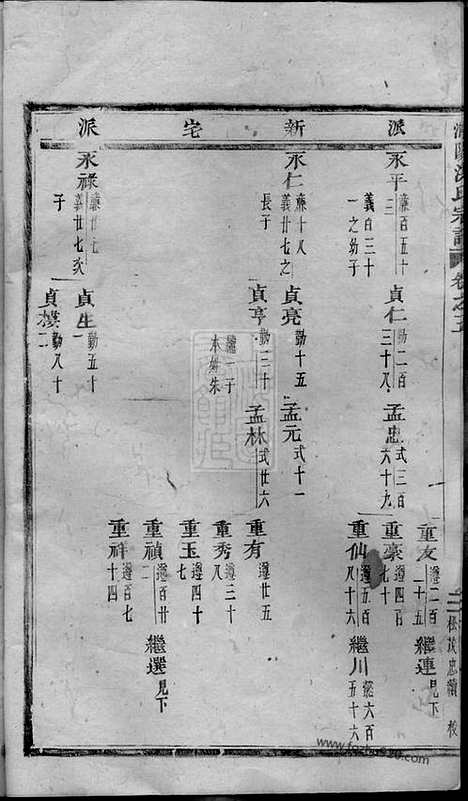 氏宗譜 卷之五
二 松茂忠續校
派
新
宅
派
永平 廉百五十三 義百三十一之幼子
貞仁 勤二百三十八
孟忠 式三百六十九
重友 遵二百二十五
繼連 見下
重豪 遵四百七十
重仙 遵五百八十六
繼川 懿六百五十六
永仁 廉十八 義廿七之長子
貞亮 勤十五
孟元 式十一
貞亨 勤三十 繼一子 本姓朱
孟林 式廿六
重有 遵廿五
重秀 遵三十八
重玉 遵四十七
重禎 遵百廿二
繼選 見下
重祥 遵百七十四
永祿 廉廿九 義廿七次子
貞生 勤五十一
貞樸 勤八十二
www.fozupu10.com